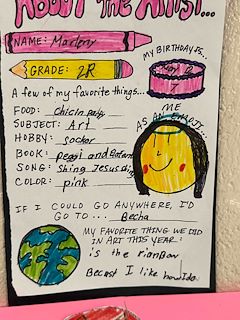 About the Artist...
NAME: Marleny
GRADE: 2R
MY BIRTHDAY IS...
7
A few of my favorite things...
ME
AS AN EMOJI...
FOOD: Chicin
SUBJECT: Art
HOBBY: socker
BOOK: peggi and
SONG: Shing Jesus
COLOR: pink
IF I COULD GO ANYWHERE, I'D
GO TO... Becha
MY FAVORITE THING WE DID
IN ART THIS YEAR:
is the rianbow
Becust I like